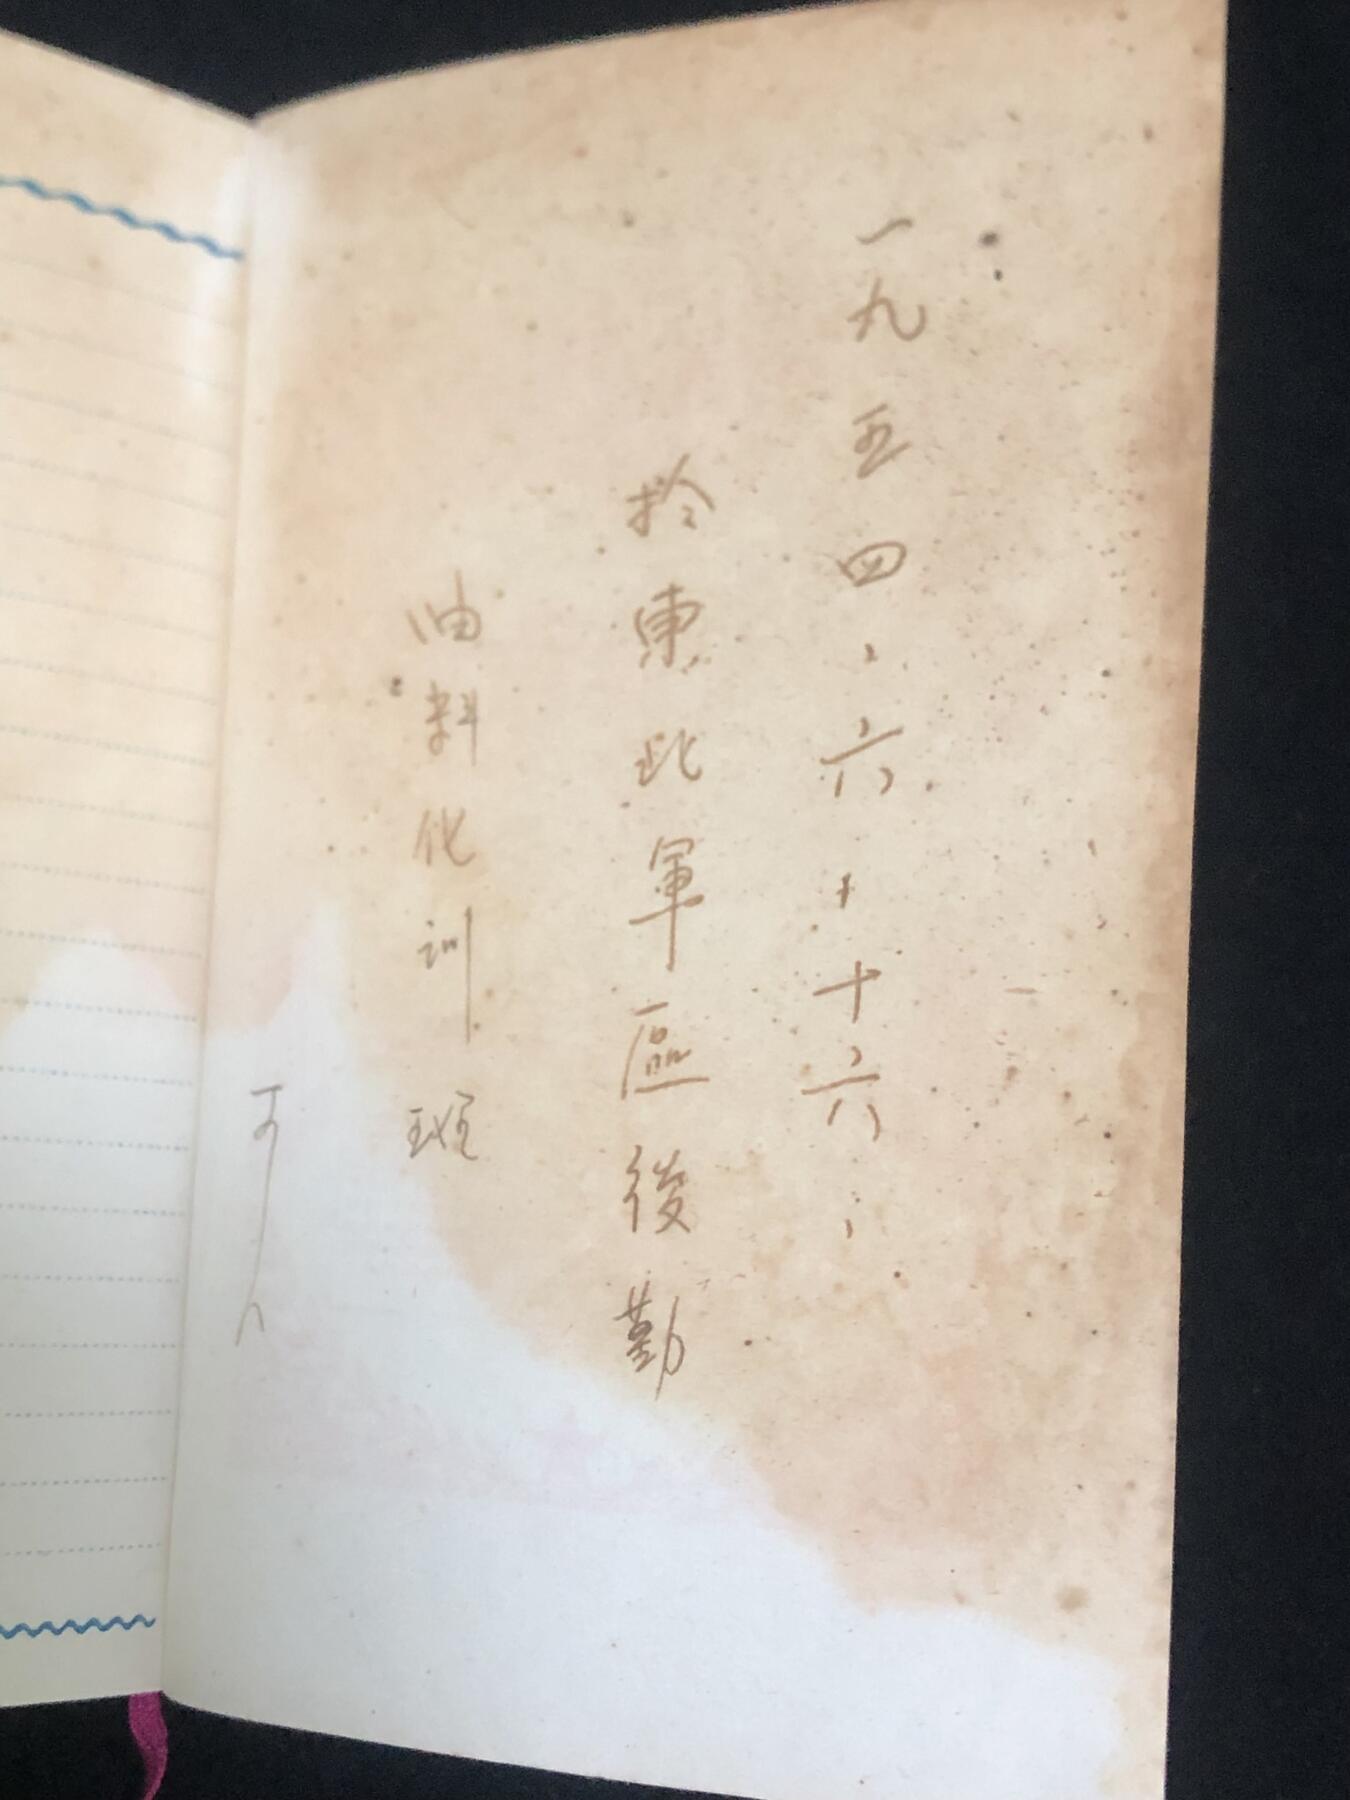 一九五四、六、十六、
於東北軍區後勤
油料化训班